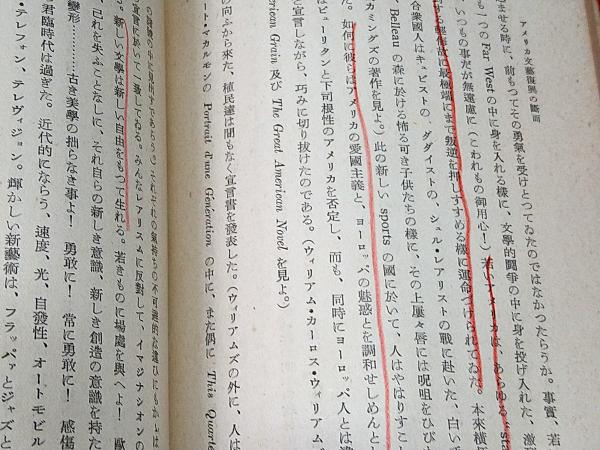 アメリカ文藝復興の諸面
ませる時に、前もつてその勇氣を受けとつてゐたのではなかつたらうか。事實、若
も一つの Far West の中に身を入れる樣に、文學的鬪爭の中に身を投げ入れた、激
いつもの事だが無遠慮に(こわれもの御用心!)若いアメリカは、あらゆる
する輕信故に最極端にまで叛逆を押しすすめる樣に運命づけられてゐた。本來橫
合衆國人はキュビストの、ダダイストの、シュル・レアリストの戰に赴いた、白い手
Belleau の森に於ける怖る可き子供たちの樣に、その上屢々唇には呪咀をひびか
カミングズの著作を見よ。)此の新しい sports の國に於いて、人はやはりすこ
た。如何に彼らはアメリカの愛國主義と、ヨーロッパの魅惑とを調和せしめんと
はピューリタンと下司根性のアメリカを否定し、而も、同時にヨーロッパ人とは違
を宣言しながら、巧みに切り拔けたのである。(ウィリアム・カーロス・ウィリアム
American Grain 及び The Great American Novel を見よ。)
の向ふから來た、植民達は間もなく宣言書を發表した。(ウィリアムズの外に、人は
ート・マカルモンの Portrait d'une Génération の中に、また偶に This Quarte
宣言に於いて一致してゐる。みんなレアリスムに反對して、イマジナシオンの
。新しい文學は新しい自由をもつて生れる。若きものに場處を與へよ! 歐
、己れを失ふことなしに、それ自らの新しき意識、新しき創造の意識を持た
變形……古き美學の拙らなき事よ! 勇敢に! 常に勇敢に! 感傷
君臨時代は過ぎた。近代的にならう、速度、光、自發性、オートモビル
・テレフォン、テレヴィジョン。輝かしい新藝術は、フラッパァとジャズと